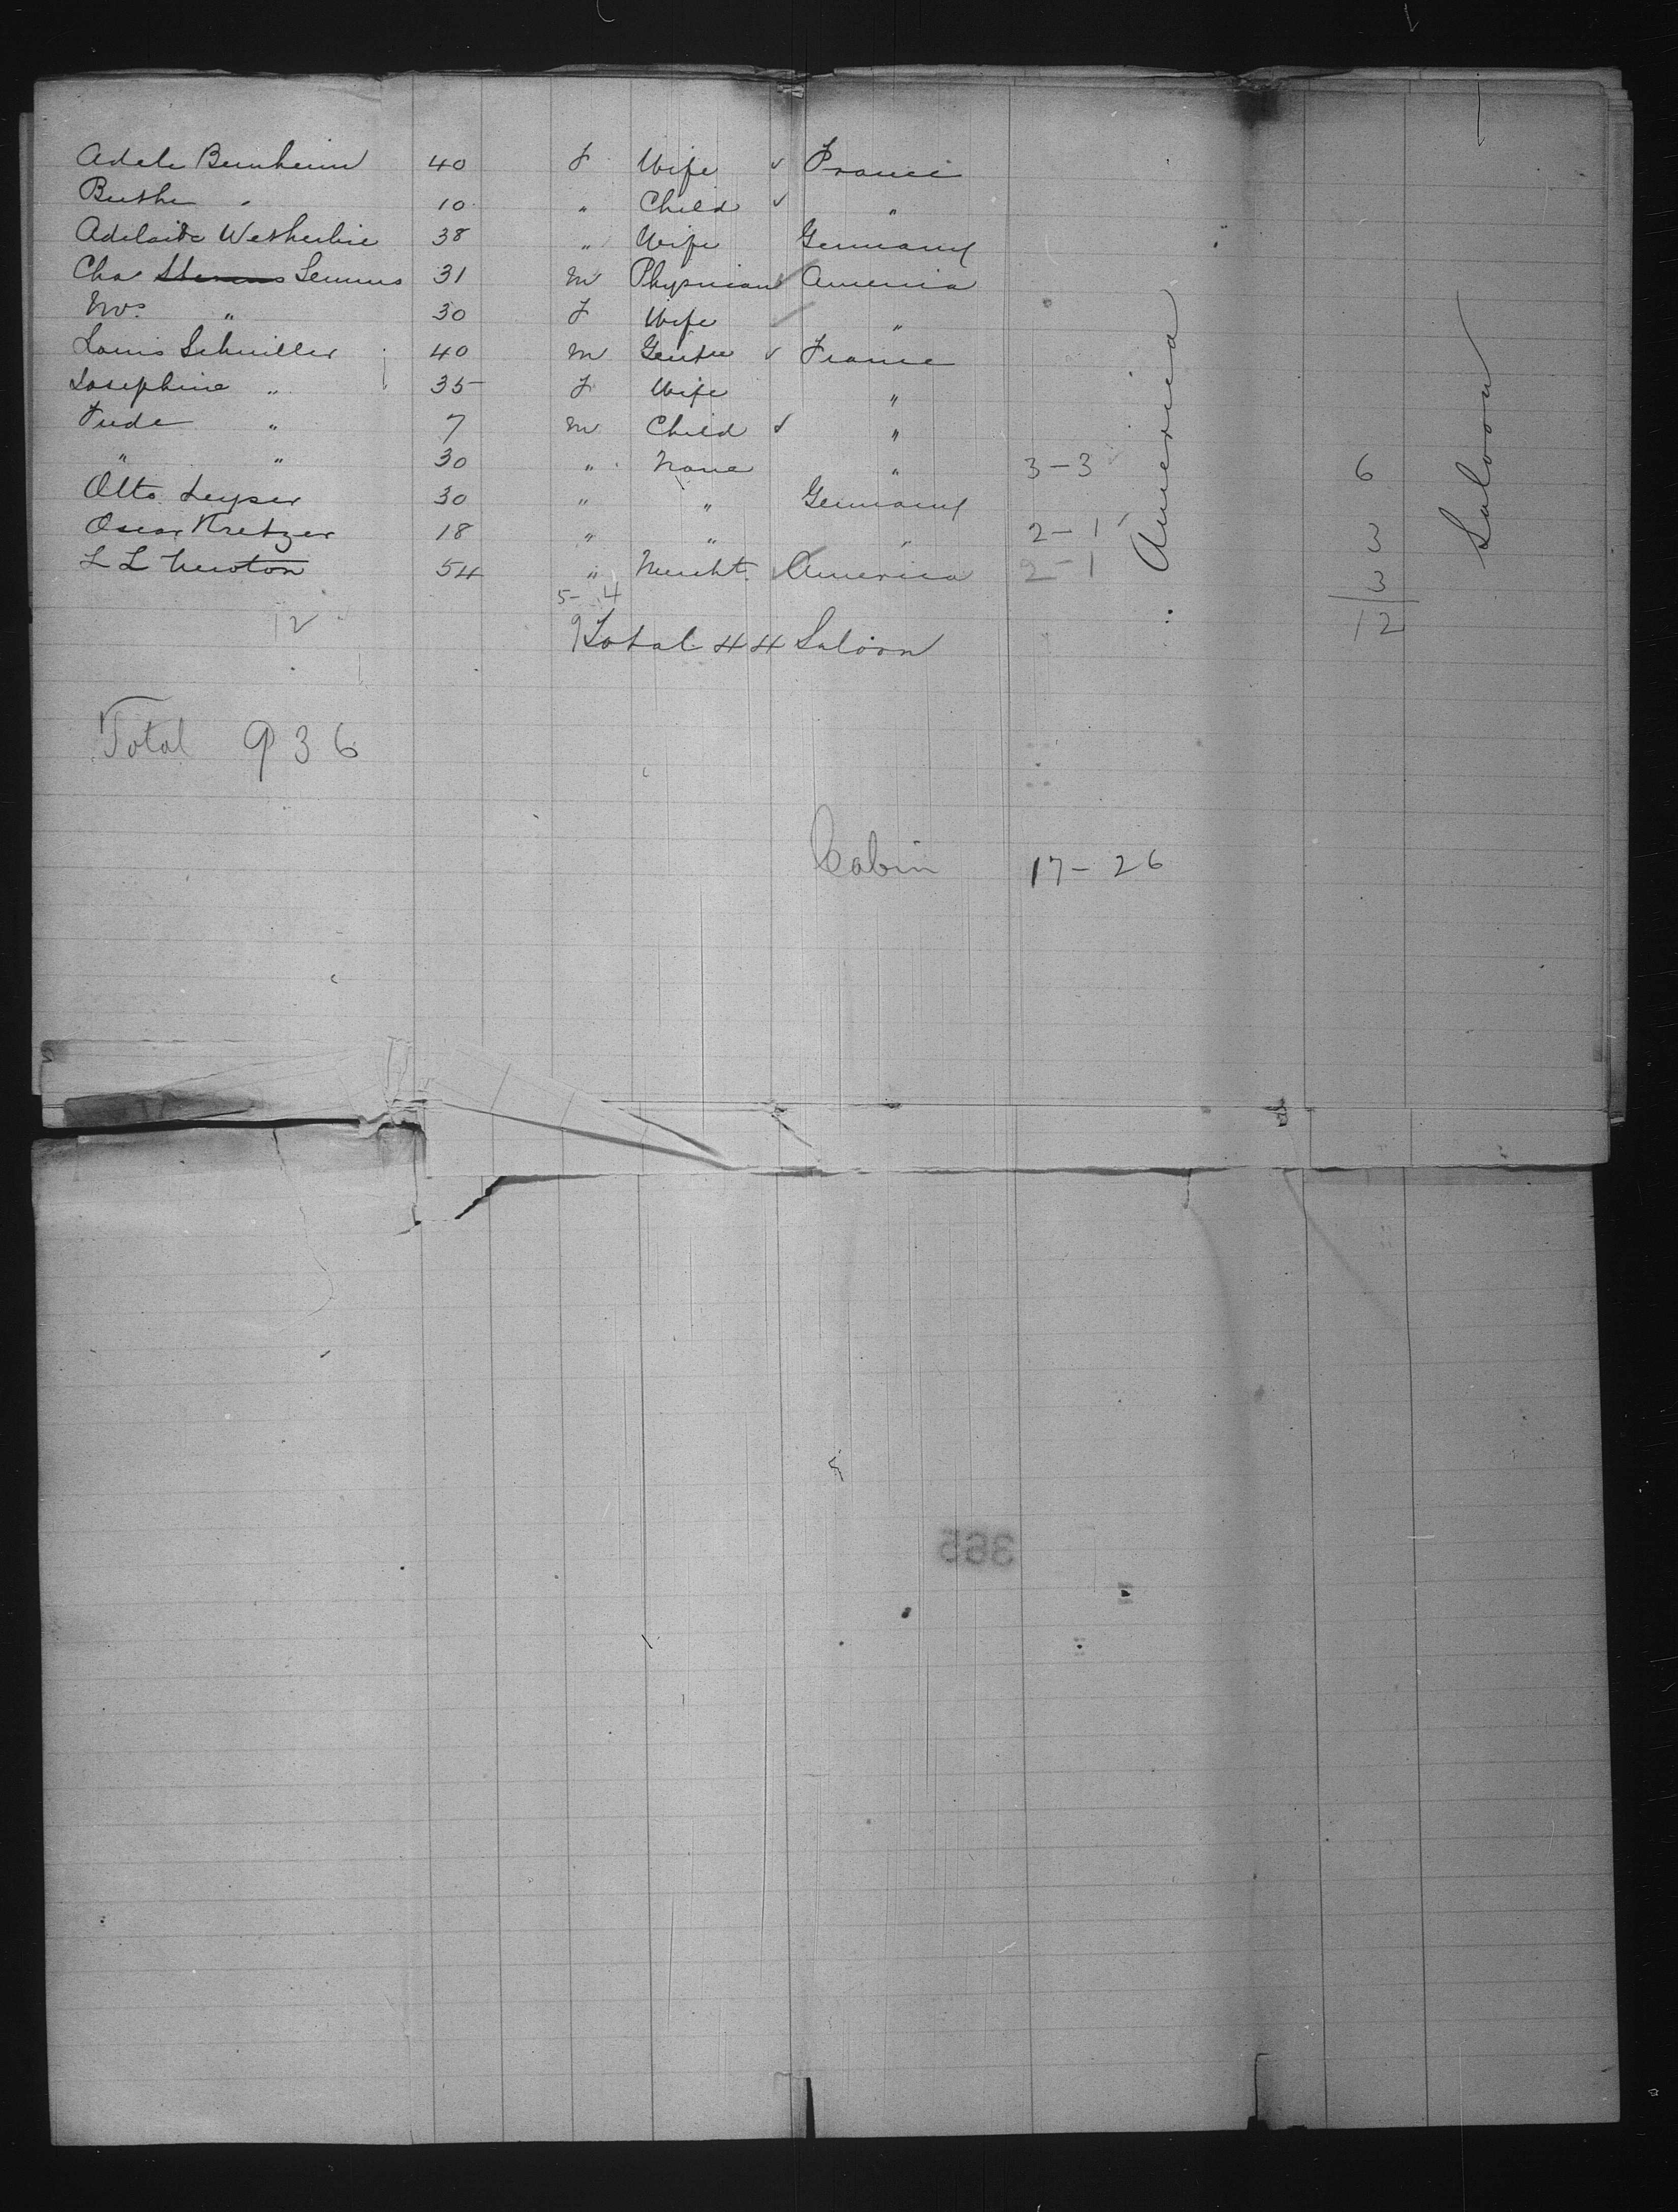 Adele Bernheim 40 F Wife ✓ France
Berthe " 10 " Child ✓ "
Adelaide Wetherbie 38 " Wife Germany
Cha Semms 31 M Physician America
Mrs. " 30 F Wife "
Louis Schuiller 40 M Gentn ✓ France
Josephine " 35 F Wife "
" 7 M Child ✓ "
" " 30 " None " 3-3 6
Otto Leyser 30 " " Germany
Oscar Kretzer 18 " " " 2-1 3
L L Newton 54 " Mercht. America 2-1 3
America
Saloon
5-4
12 9 Total 44 Saloon 12
Total 936
Cabin 17-26
365